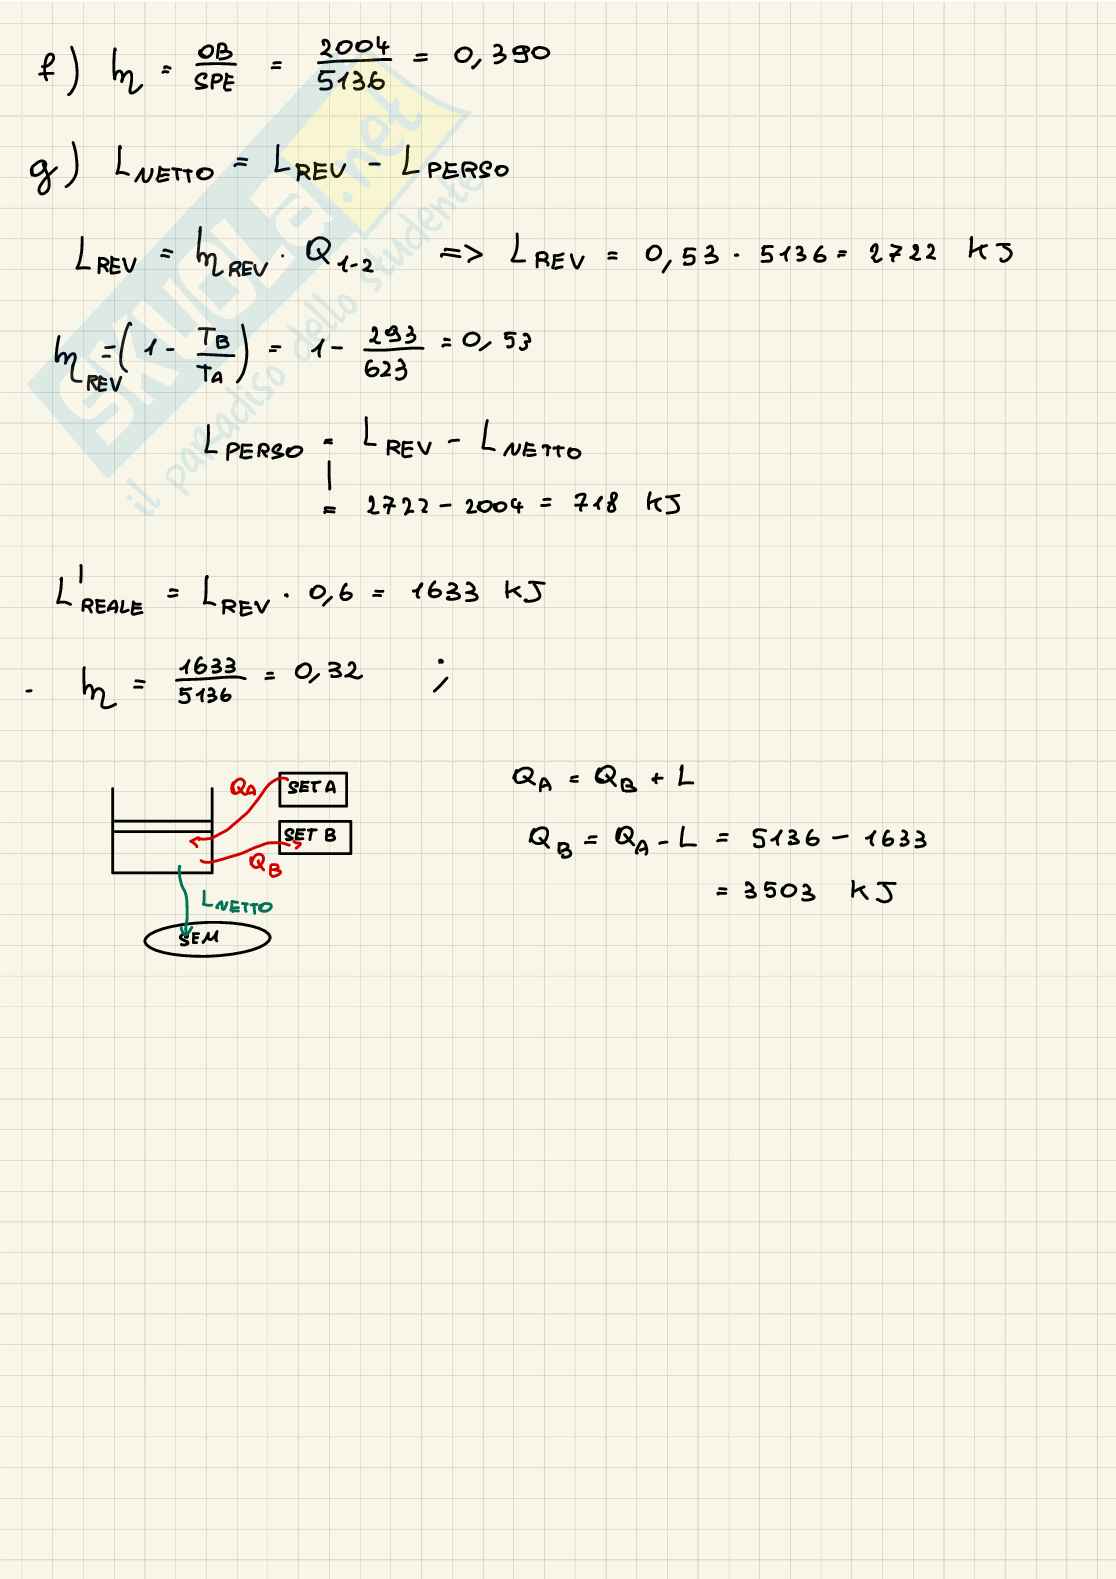 f) η = OB/SPE = 2004/5136 = 0,390
g) L NETTO = L REV - L PERSO
L REV = η REV · Q 1-2 => L REV = 0,53 · 5136 = 2722 KJ
η REV = (1 - TB/TA) = 1 - 293/623 = 0,53
L PERSO = L REV - L NETTO
= 2722 - 2004 = 718 KJ
L' REALE = L REV · 0,6 = 1633 KJ
- η = 1633/5136 = 0,32 ;
QA
SET A
SET B
QB
L NETTO
SEM
QA = QB + L
QB = QA - L = 5136 - 1633
= 3503 KJ
SKUOLA.net
il paradiso dello studente